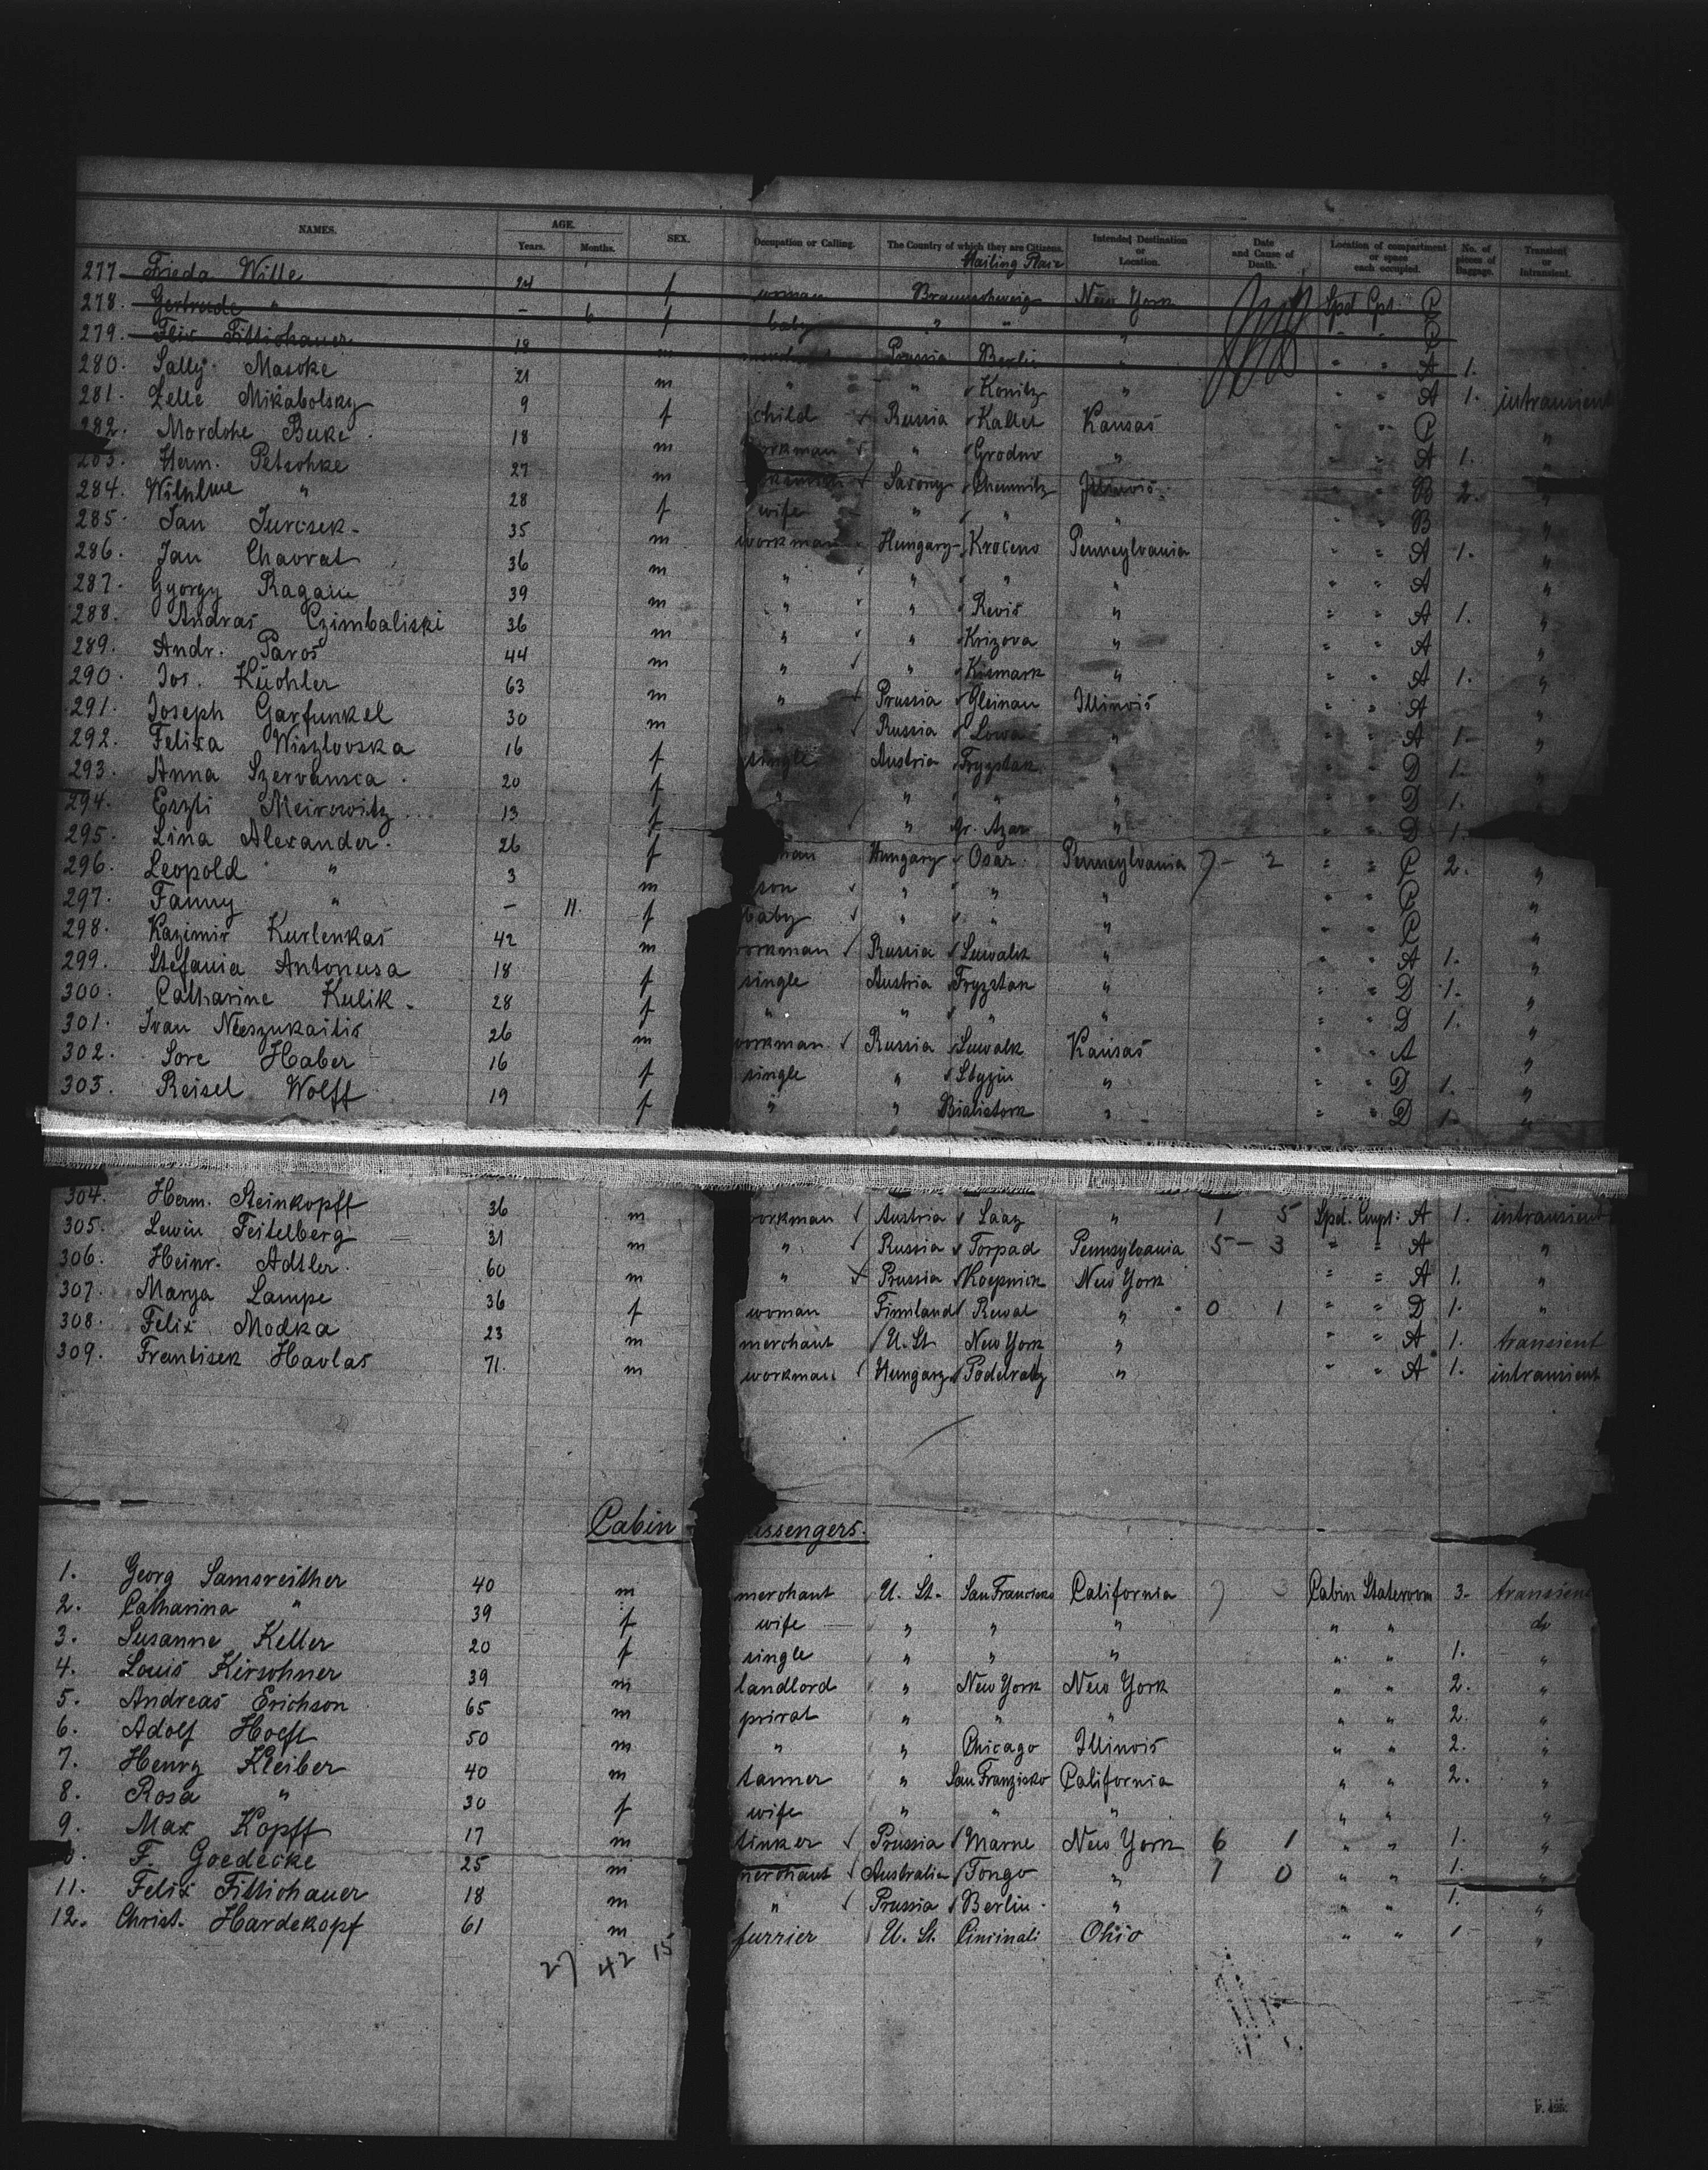 NAMES. AGE. Years. Months. SEX. Occupation or Calling. The Country of which they are Citizens. Intended Destination or Location. Date and Cause of Death. Location of compartment or space each occupied. No. of pieces of Baggage. Transient or Intransient.
277 Frieda Wille 24 f woman Braunschweig New York Spd Cpt. C
278. Gertrude " – 6 f baby " " " " " C
279. Felix Fittichauer 18 m Prussia Berlin " " " A 1.
280. Sally Masoke 21 m " " Konitz " " " A 1. intransient
281. Zelle Mikabolsky 9 f child Russia Kallet Kansas " " C "
282. Mordche Beeke 18 m workman " Grodno " " " A 1. "
283. Herm. Petschke 27 m Saxony Chemnitz Illinois " " B 2. "
284. " 28 f wife " " " " " B "
285. Jan Jurcsek 35 m workman Hungary Kroceno Pennsylvania " " A 1. "
286. Jan Chavrat 36 m " " " " " " A "
287. Gyorgy Ragain 39 m " " Revis " " " A 1. "
288. Andras Czimbaliski 36 m " " Krizova " " " A "
289. Andr. Paros 44 m " " Kismark " " " A 1. "
290. Jos. Küchler 63 m " Prussia Gleinau Illinois " " A "
291. Joseph Garfunkel 30 m " Russia Lowa " " " A 1. "
292. Felixa Wiszlovska 16 f single Austria Fryzstak " " " D 1. "
293. Anna Szervansca 20 f " " " " " " D 1. "
294. Eszti Meirowitz 13 f " " Gr. Azar " " " D 1.
295. Lina Alexander 26 f woman Hungary Osar Pennsylvania 7 – 2 " " C 2. "
296. Leopold " 3 m son " " " " " C "
297. Fanny " – 11. f baby " " " " " C "
298. Kazimir Kurlenkas 42 m workman Russia Suwalk " " " A 1. "
299. Stefania Antonusa 18 f single Austria Fryzstak " " " D 1. "
300. Catharine Kulik 28 f " " " " " " D 1. "
301. Ivan Neeszukaitis 26 m workman Russia Suwalk Kansas " " A "
302. Sore Haber 16 f single " " " " D 1. "
303. Reisel Wolff 19 f " " Bialistock " " " D 1. "
304. Herm. Steinkopff 36 m workman Austria Saaz " 1 5 Spd. Cmpt: A 1. intransient
305. Lewin Feitelberg 31 m " Russia Torpad Pennsylvania 5 – 3 " " A "
306. Heinr. Adtler 60 m " Prussia Koepnick New York " " A 1. "
307. Marya Lampe 36 f woman Finnland Rewal " 0 1 " " D 1. "
308. Felix Modka 23 m merchant U. St. New York " " " A 1. transient
309. Frantisek Havlas 71. m workman Hungary Podelratz " " " A 1. intransient
Cabin Passengers.
1. Georg Samsreither 40 m merchant U. St. San Francisko California 7 3 Cabin Stateroom 3. transient
2. Catharina " 39 f wife " " " " " do
3. Susanne Keller 20 f single " " " " " 1. "
4. Louis Kirschner 39 m landlord " New York New York " " 2. "
5. Andreas Erichson 65 m privat " " " " " 2. "
6. Adolf Hoeft 50 m " " Chicago Illinois " " 2. "
7. Henry Kleiber 40 m tanner " San Franzisko California " " 2. "
8. Rosa " 30 f wife " " " " " "
9. Max Kopff 17 m tinker Prussia Marne New York 6 1 " " 1. "
10. F. Goedecke 25 m merchant Australia Tongo " 1 0 " " 1. "
11. Felix Fittichauer 18 m " Prussia Berlin " " " 1. "
12. Christ. Hardekopf 61 m furrier U. St. Cincinati Ohio " " 1 "
27 42 15